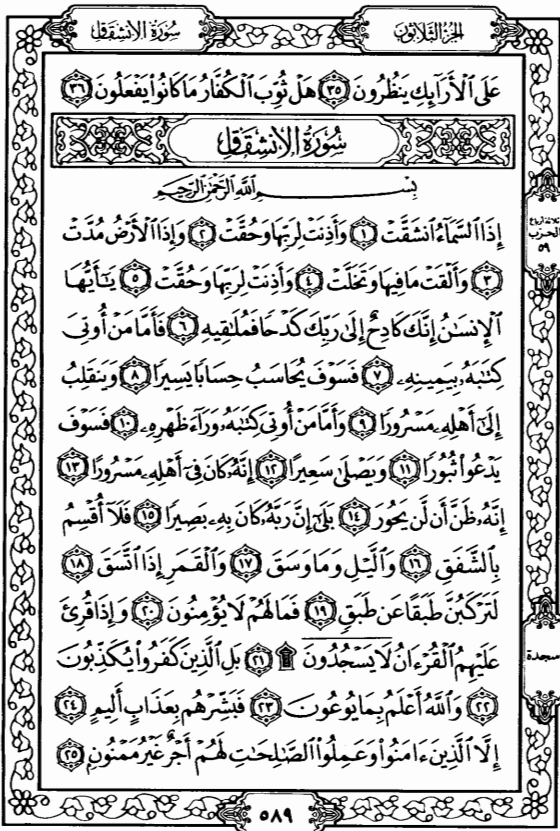 سُورَةُ الانشِقَاقِ
الجُزْءُ الثَّلَاثُونَ
عَلَى ٱلْأَرَآئِكِ يَنظُرُونَ ٣٥ هَلْ ثُوِّبَ ٱلْكُفَّارُ مَا كَانُوا۟ يَفْعَلُونَ ٣٦
سُورَةُ الانشِقَاقِ
بِسْمِ ٱللَّهِ ٱلرَّحْمَٰنِ ٱلرَّحِيمِ
إِذَا ٱلسَّمَآءُ ٱنشَقَّتْ ١ وَأَذِنَتْ لِرَبِّهَا وَحُقَّتْ ٢ وَإِذَا ٱلْأَرْضُ مُدَّتْ
٣ وَأَلْقَتْ مَا فِيهَا وَتَخَلَّتْ ٤ وَأَذِنَتْ لِرَبِّهَا وَحُقَّتْ ٥ يَٰٓأَيُّهَا
ٱلْإِنسَٰنُ إِنَّكَ كَادِحٌ إِلَىٰ رَبِّكَ كَدْحًا فَمُلَٰقِيهِ ٦ فَأَمَّا مَنْ أُوتِىَ
كِتَٰبَهُۥ بِيَمِينِهِۦ ٧ فَسَوْفَ يُحَاسَبُ حِسَابًا يَسِيرًا ٨ وَيَنقَلِبُ
إِلَىٰٓ أَهْلِهِۦ مَسْرُورًا ٩ وَأَمَّا مَنْ أُوتِىَ كِتَٰبَهُۥ وَرَآءَ ظَهْرِهِۦ ١٠ فَسَوْفَ
يَدْعُوا۟ ثُبُورًا ١١ وَيَصْلَىٰ سَعِيرًا ١٢ إِنَّهُۥ كَانَ فِىٓ أَهْلِهِۦ مَسْرُورًا ١٣
إِنَّهُۥ ظَنَّ أَن لَّن يَحُورَ ١٤ بَلَىٰٓ إِنَّ رَبَّهُۥ كَانَ بِهِۦ بَصِيرًا ١٥ فَلَآ أُقْسِمُ
بِٱلشَّفَقِ ١٦ وَٱلَّيْلِ وَمَا وَسَقَ ١٧ وَٱلْقَمَرِ إِذَا ٱتَّسَقَ ١٨
لَتَرْكَبُنَّ طَبَقًا عَن طَبَقٍ ١٩ فَمَا لَهُمْ لَا يُؤْمِنُونَ ٢٠ وَإِذَا قُرِئَ
عَلَيْهِمُ ٱلْقُرْءَانُ لَا يَسْجُدُونَ ۩ ٢١ بَلِ ٱلَّذِينَ كَفَرُوا۟ يُكَذِّبُونَ
٢٢ وَٱللَّهُ أَعْلَمُ بِمَا يُوعُونَ ٢٣ فَبَشِّرْهُم بِعَذَابٍ أَلِيمٍ ٢٤
إِلَّا ٱلَّذِينَ ءَامَنُوا۟ وَعَمِلُوا۟ ٱلصَّٰلِحَٰتِ لَهُمْ أَجْرٌ غَيْرُ مَمْنُونٍ ٢٥
ثلاثة أرباع
الحزب
٥٩
سجدة
٥٨٩